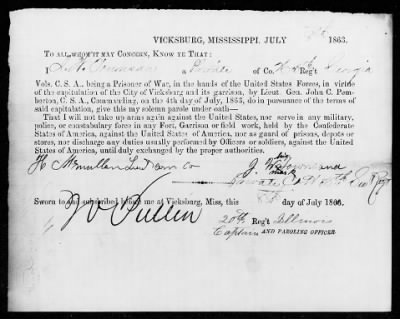 VICKSBURG, MISSISSIPPI, JULY 1863.
TO ALL WHOM IT MAY CONCERN, KNOW YE THAT:
I a Private of Co. Reg't Georgia
Vols. C. S. A., being a Prisoner of War, in the hands of the United States Forces, in virtue
of the capitulation of the City of Vicksburg and its garrison, by Lieut. Gen. John C. Pem-
berton, C. S. A., Commanding, on the 4th day of July, 1863, do in pursuance of the terms of
said capitulation, give this my solemn parole under oath—
That I will not take up arms again against the United States, nor serve in any military,
police, or constabulary force in any Fort, Garrison or field work, held by the Confederate
States of America, against the United States of America, nor as guard of prisons, depots or
stores, nor discharge any duties usually performed by Officers or soldiers, against the United
States of America, until duly exchanged by the proper authorities.
H McMullan Lieut Com Co J. his
mark
Private Co
Sworn to and subscribed before me at Vicksburg, Miss., this 8th day of July 1863.
J V Pullen
20th Reg't Illinois
Captain AND PAROLING OFFICER.